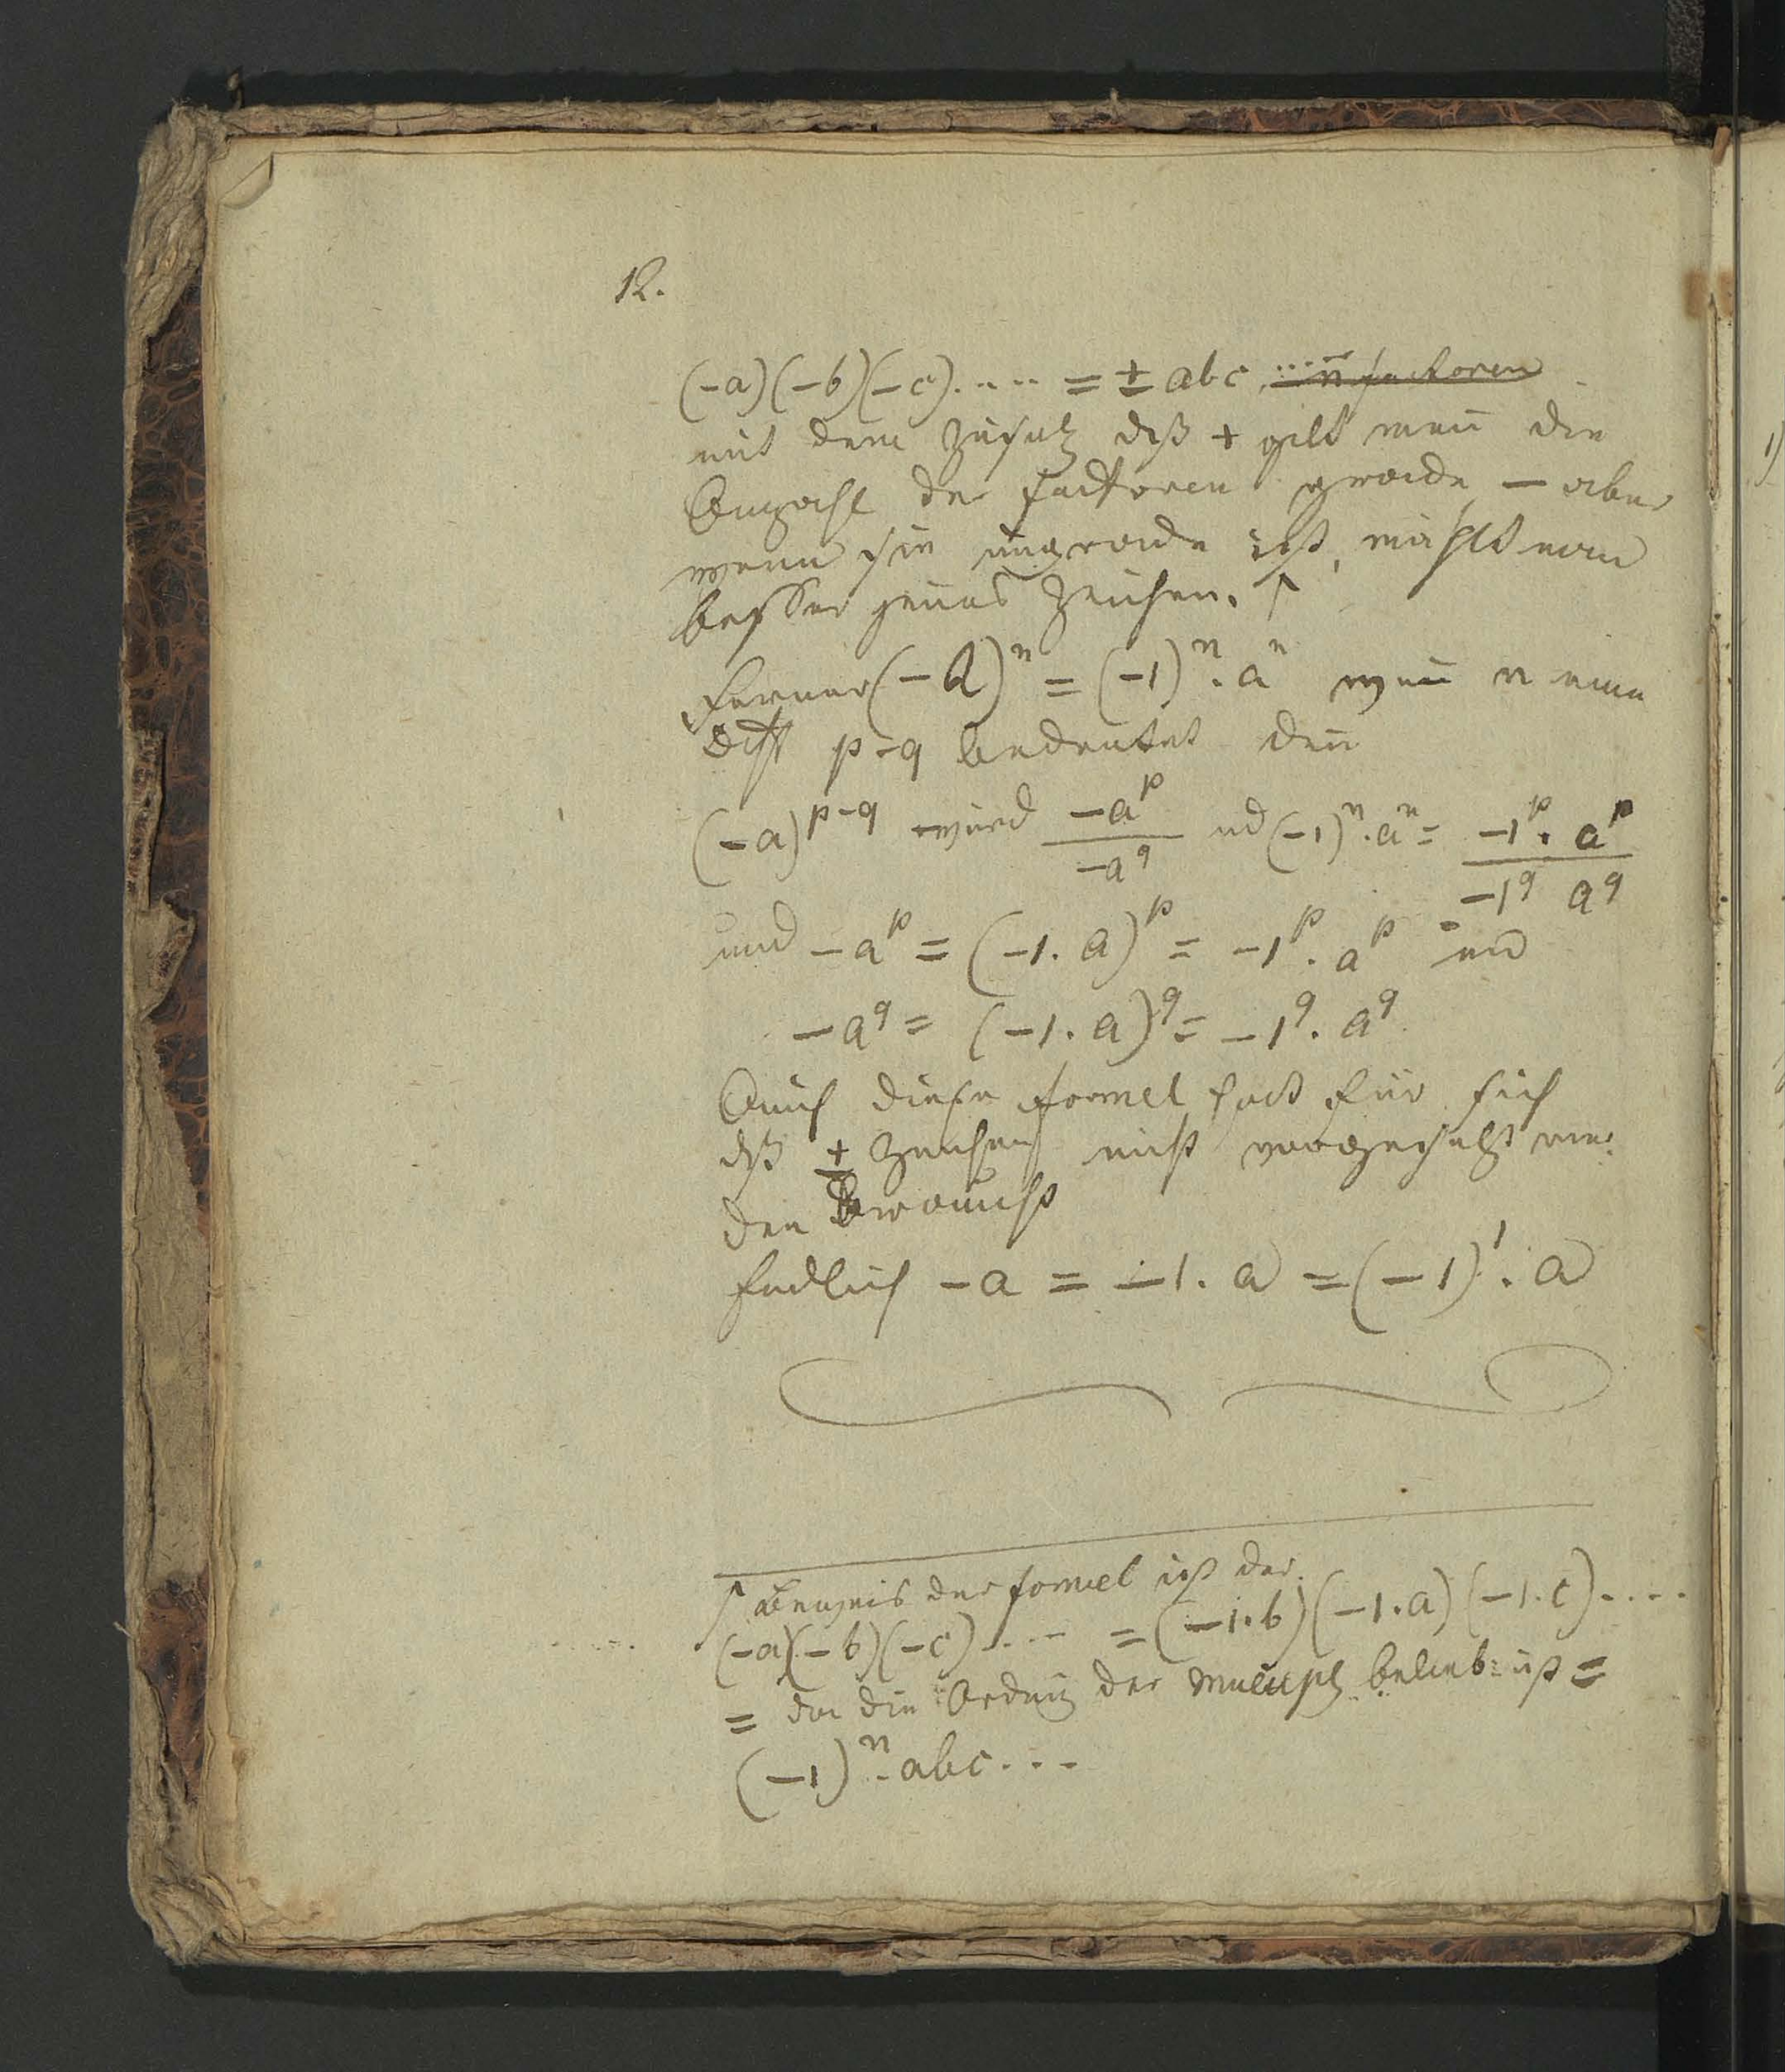 12.
(-a)(-b)(-c).... = ± abc ... n factoren
mit dem Zusatz dß + gilt wen̄ die
Anzahl der factoren gerade — aber
wenn sie ungerade ist, man
besser Zeichen. ↑
ferner (-a)ⁿ = (-1)ⁿ. aⁿ wen̄ n eine
Diff p-q bedeutet den̄
(-a)^{p-q} wird \frac{-a^p}{-a^q} ud (-1)ⁿ.aⁿ = \frac{-1^p. a^p}{-1^q a^q}
und -a^p = (-1. a)^p = -1^p. a^p und
-a^q = (-1. a)^q = -1^q. a^q
Auch diese formel hat für sich
dß ± Zeichen nicht vorgesetzt wer:
den braucht
Endlich -a = -1. a = (-1)^1. a
↑ Beweis der formel ist der.
(-a)(-b)(-c).... = (-1.b)(-1.a)(-1.c)....
= da die Ordnug der belieb: ist =
(-1)ⁿ. abc...
1)